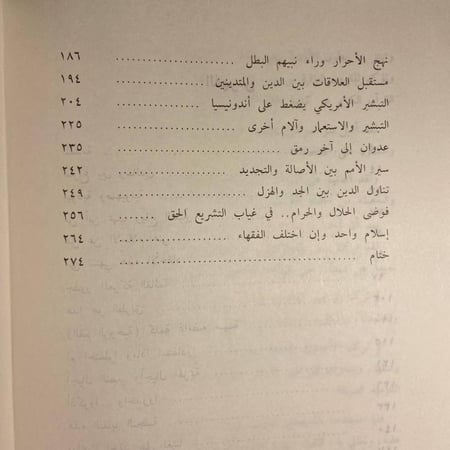 نهج الأحرار وراء نبيهم البطل .................. ١٨٦
مستقبل العلاقات بين الدين والمتدينين .......... ١٩٤
التبشير الأمريكي يضغط على أندونيسيا .......... ٢٠٤
التبشير والاستعمار وآلام أخرى .................. ٢٢٥
عدوان إلى آخر رمق .................. ٢٣٥
سير الأمم بين الأصالة والتجديد .................. ٢٤٢
تناول الدين بين الجد والهزل .................. ٢٤٩
فوضى الحلال والحرام.. في غياب التشريع الحق ....... ٢٥٦
إسلام واحد وإن اختلف الفقهاء .................. ٢٦٤
ختام .................. ٢٧٤